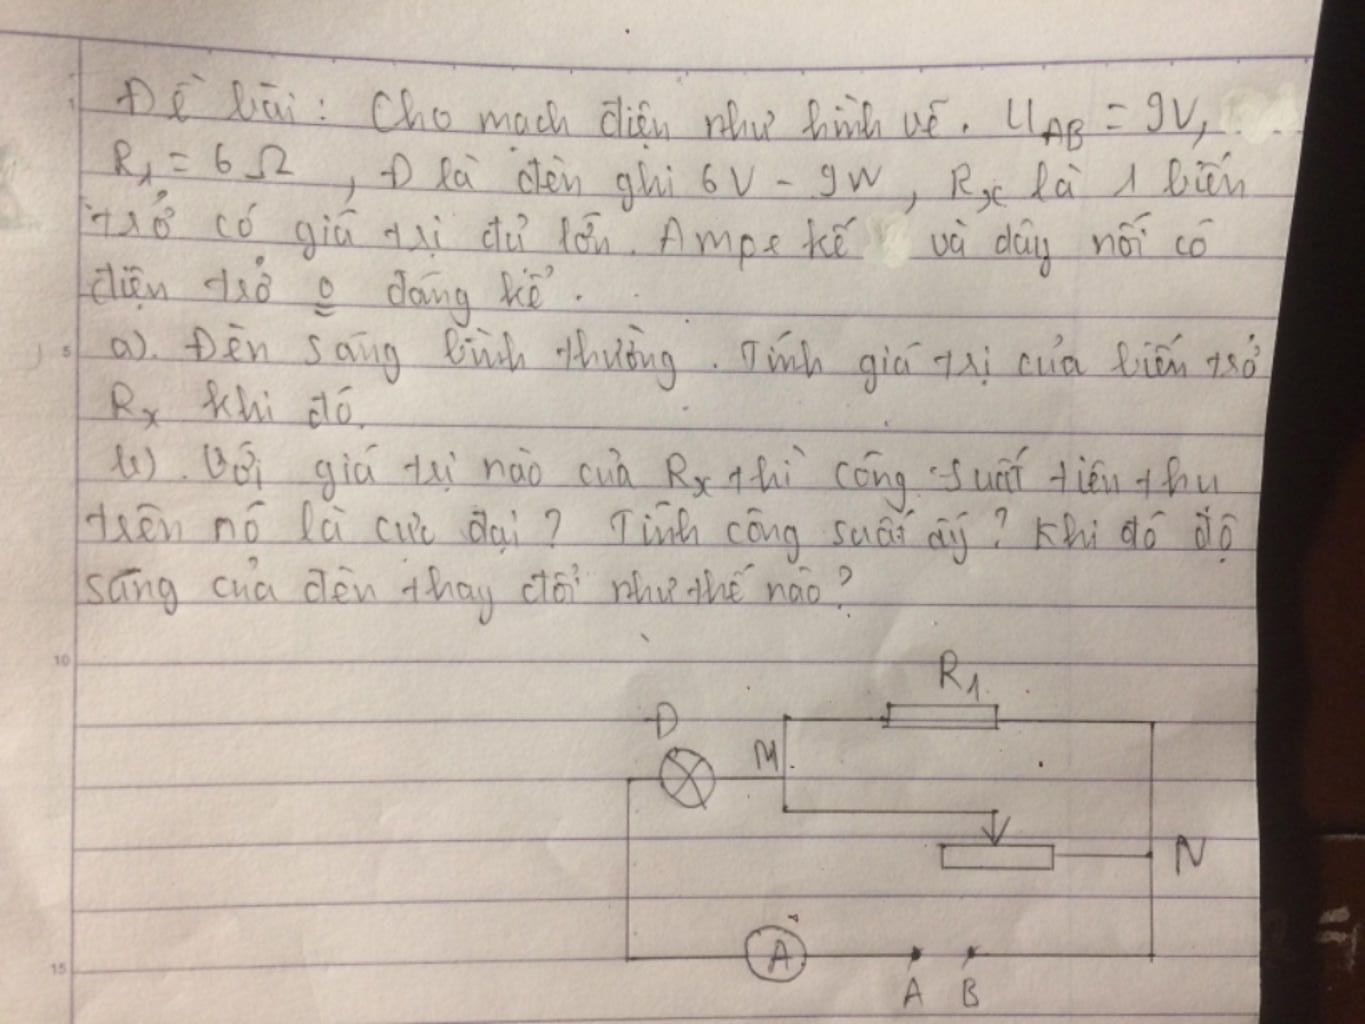 Đề bài: Cho mạch điện như hình vẽ. UAB = 9V,
R1 = 6 Ω , Đ là đèn ghi 6V - 9W, Rx là 1 biến
trở có giá trị đủ lớn. Ampe kế và dây nối có
điện trở o đáng kể.
a). Đèn sáng bình thường. Tính giá trị của biến trở
Rx khi đó.
b). Với giá trị nào của Rx thì công suất tiêu thụ
trên nó là cực đại? Tính công suất ấy? Khi đó độ
sáng của đèn thay đổi như thế nào?
R1
Đ
M
N
A
A B
5
10
15